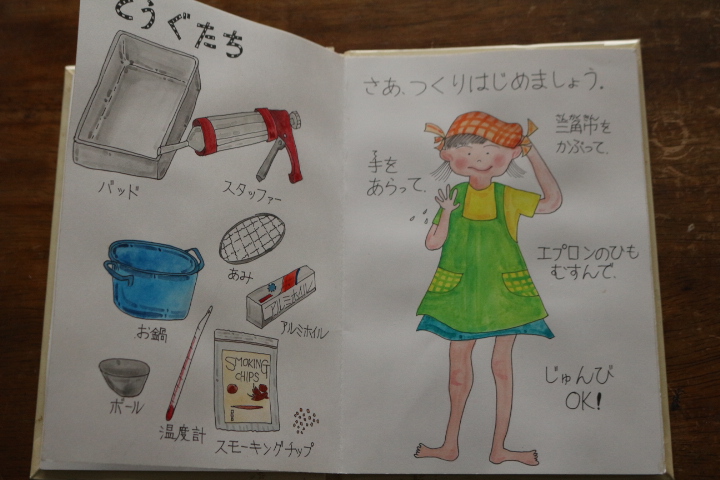 どうぐたち
バッド
スタッファー
あみ
アルミホイル
アルミホイル
お鍋
SMOKING
CHIPS
ボール
温度計
スモーキングチップ
さあ、つくりはじめましょう。
三角巾を
かぶって、
手を
あらって、
エプロンのひも
むすんで、
じゅんび
OK!